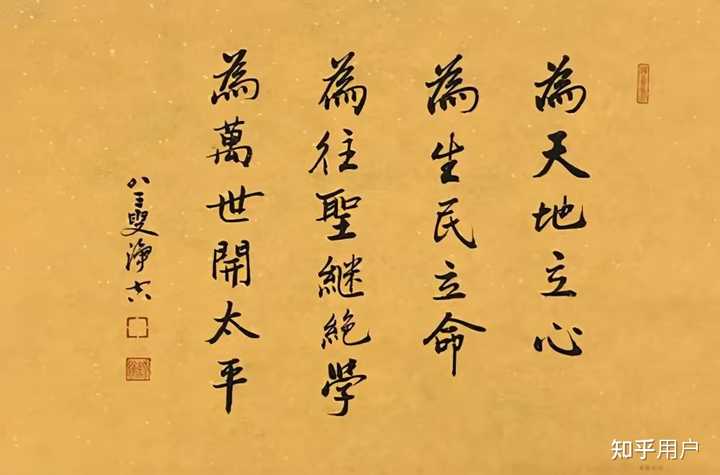 為天地立心
為生民立命
為往聖継絕學
為萬世開太平
八三叟淨空
知乎用户